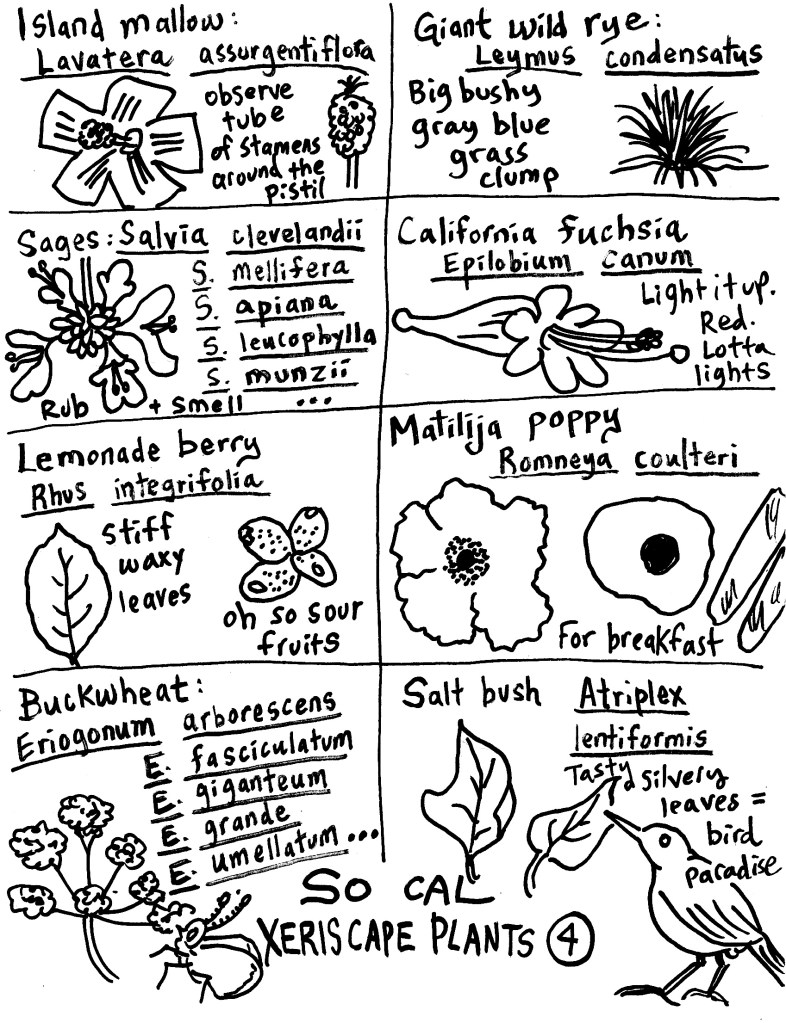 Island mallow:
Lavatera assurgentiflora
observe
tube
of stamens
around the
pistil
Giant wild rye:
Leymus condensatus
Big bushy
gray blue
grass
clump
Sages: Salvia clevelandii
S. mellifera
S. apiana
S. leucophylla
S. munzii
...
Rub + smell
California fuchsia
Epilobium canum
Light it up.
Red.
Lotta
lights
Lemonade berry
Rhus integrifolia
stiff
waxy
leaves
oh so sour
fruits
Matilija poppy
Romneya coulteri
For breakfast
Buckwheat:
Eriogonum arborescens
E. fasciculatum
E. giganteum
E. grande
E. umellatum ...
Salt bush Atriplex
lentiformis
Tasty silvery
leaves =
bird
paradise
SO CAL
XERISCAPE PLANTS 4